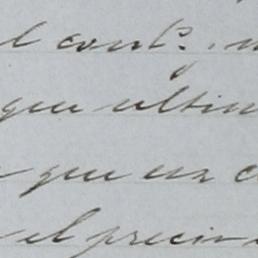 l cont.º
que ultim
que en c
el precio